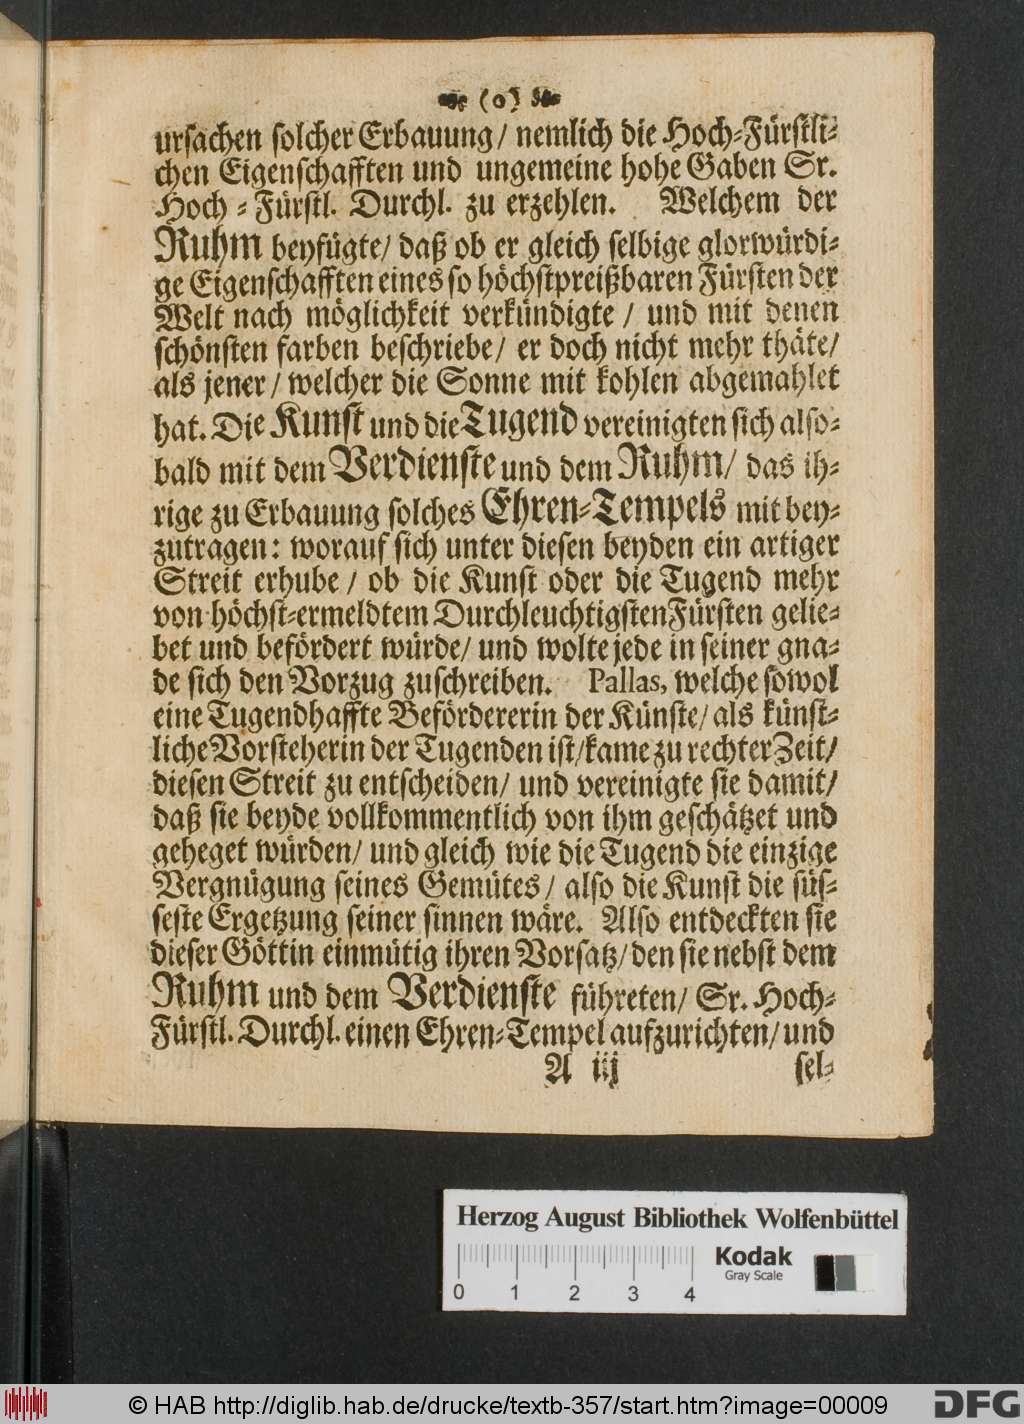 (o)
ursachen solcher Erbauung/ nemlich die Hoch-Fürstli-
chen Eigenschafften und ungemeine hohe Gaben Sr.
Hoch-Fürstl. Durchl. zu erzehlen. Welchem der
Ruhm beyfügte/ daß ob er gleich selbige glorwürdi-
ge Eigenschafften eines so höchstpreißbaren Fürsten der
Welt nach möglichkeit verkündigte/ und mit denen
schönsten farben beschriebe/ er doch nicht mehr thäte/
als jener/ welcher die Sonne mit kohlen abgemahlet
hat. Die Kunst und die Tugend vereinigten sich also-
bald mit dem Verdienste und dem Ruhm/ das ih-
rige zu Erbauung solches Ehren-Tempels mit bey-
zutragen: worauf sich unter diesen beyden ein artiger
Streit erhube/ ob die Kunst oder die Tugend mehr
von höchst-ermeldtem Durchleuchtigsten Fürsten gelie-
bet und befördert würde/ und wolte jede in seiner gna-
de sich den Vorzug zuschreiben. Pallas, welche sowol
eine Tugendhaffte Befördererin der Künste/ als künst-
liche Vorsteherin der Tugenden ist/ kame zu rechter Zeit/
diesen Streit zu entscheiden/ und vereinigte sie damit/
daß sie beyde vollkommentlich von ihm geschätzet und
geheget würden/ und gleich wie die Tugend die einzige
Vergnügung seines Gemütes/ also die Kunst die süs-
seste Ergetzung seiner sinnen wäre. Also entdeckten sie
dieser Göttin einmütig ihren Vorsatz/ den sie nebst dem
Ruhm und dem Verdienste führeten/ Sr. Hoch-
Fürstl. Durchl. einen Ehren-Tempel aufzurichten/ und
A iij sel-
Herzog August Bibliothek Wolfenbüttel
Kodak
Gray Scale
0 1 2 3 4
© HAB http://diglib.hab.de/drucke/textb-357/start.htm?image=00009
DFG